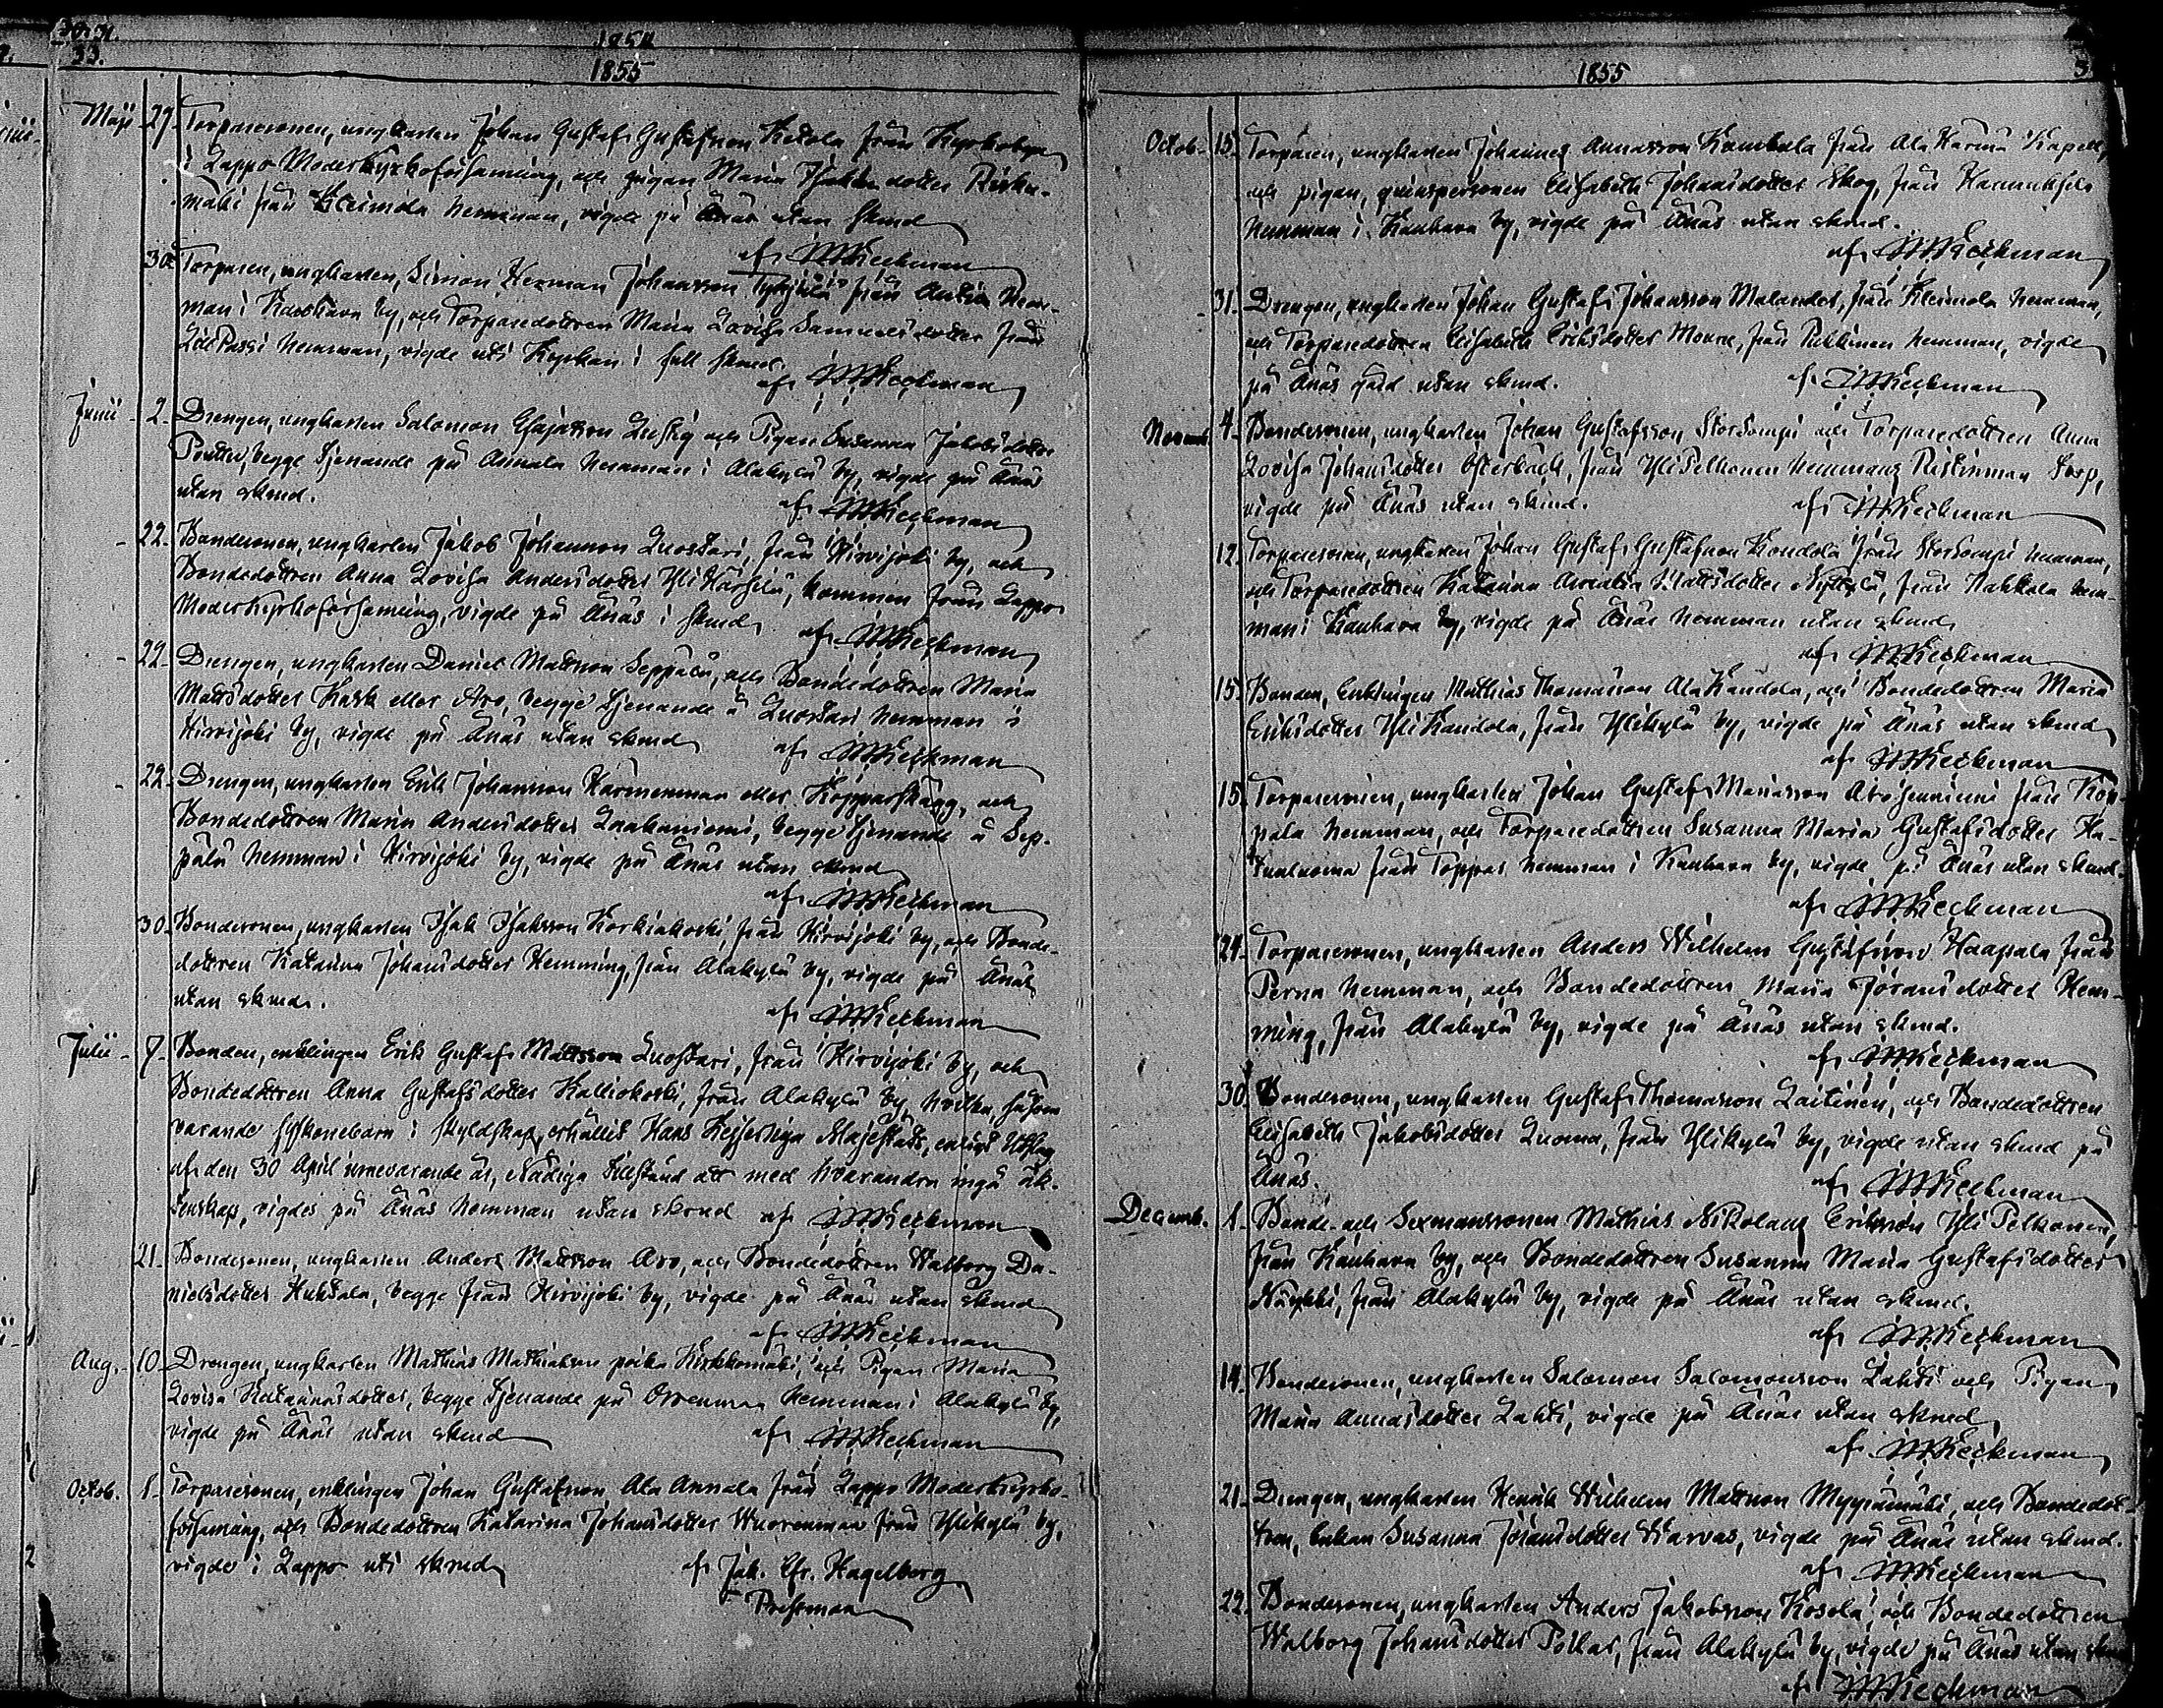 1855
Maji 27. Torparesonen, ungkarlen Johan Gustaf Gustafsson Ketola från Kyrkobyn
i Lappo Moderkyrkoförsamling, och pigan Maria Isaks dotter
mäki från Kleimola hemman, vigde på Ånäs utan skrud
af Keckman
30. Torparen, ungkarlen, Simon Herman Johansson från Antila hem-
man i Kauhava by, och Torparedottren Maria Lovisa Samuelsdotter från
Passi hemman, vigde uti Kyrkan i full skrud.
af Keckman
Junii 2. Drengen, ungkarlen Salomon Esajasson Lustig och Pigan Susanna Jakobsdotter
begge tjenande på Annala hemman i Alakylä by, vigde på Ånäs
utan skrud.
af Keckman
22. Bondesonen, ungkarlen Jakob Johansson Luostari, från Hirvijoki by, och
Bondedottren Anna Lovisa Andersdotter Yli Härsilä, kommen från Lappo
Moderkyrkoförsamling, vigde på Ånäs i skrud,
af Keckman
22. Drengen, ungkarlen Daniel Mattsson Seppälä, och Bondedottren Maria
Mattsdotter Kask eller Aro, begge tjenande å Luostari hemman i
Hirvijoki by, vigde på Ånäs utan skrud
af Keckman
22. Drengen, ungkarlen Erik Johansson Härmenman eller Kopparskägg, och
Bondedottren Maria Andersdotter Laakaniemi, begge tjenande å Sep-
pälä hemman i Hirvijoki by, vigde på Ånäs utan skrud
af Keckman
30. Bondesonen, ungkarlen Isak Isaksson Korkiakoski, från Hirvijoki by, och Bonde-
dottren Katarina Johansdotter Hemming, från Alakylä by, vigde på Ånäs
utan skrud.
af Keckman
Julii 7. Bonden, enklingen Erik Gustaf Mattsson Luostari, från Hirvijoki by, och
Bondedottren Anna Gustafsdotter Kalliokoski, från Alakylä by, hvilka, såsom
varande syskonebarn i skyldskap, erhållit Hans Kejserliga Majestäts, enligt Utslag
af den 30 April innevarande år, Nådiga tillstånd att med hvarandra ingå äk-
tenskap, vigdes på Ånäs hemman utan skrud
af Keckman
21. Bondesonen, ungkarlen Anders Mattsson Aro, och Bondedottren Walborg Da-
nielsdotter Huhtala, begge från Hirvijoki by, vigde på Ånäs utan skrud
af Keckman
Aug. 10. Drengen, ungkarlen Mathias Mathiasson poika Kirkkomäki, och Pigan Maria
Lovisa Katarinasdotter, begge tjenande på Orrenmaa hemman i Alakylä by,
vigde på Ånäs utan skrud
af Keckman
Octob. 1. Torparesonen, enklingen Johan Gustafsson Ala Annala från Lappo Moderkyrko-
församling, och Bondedottren Katarina Johansdotter Wuorenmaa från Ylikylä by,
vigde i Lappo uti skrud
af Jak. Efr. Hagelberg
Prestman
1855
Octob. 15. Torparen, ungkarlen Johannes Annasson Kambala från Ala Härmä Kapell,
och pigan, qvinspersonen Elisabeth Johansdotter Skog, från
hemman i Kauhava by, vigde på Ånäs utan skrud.
af Keckman
31. Drengen, ungkarlen Johan Gustaf Johansson Malander, från Kleimola hemman,
och Torparedottren Elisabeth Eriksdotter från Pelkinen hemman, vigde
på Ånäs gård utan skrud.
af Keckman
Novemb. 4. Bondesonen, ungkarlen Johan Gustafsson StorSompi och Torparedottren Anna
Lovisa Johansdotter Österback, från Yli Pelkonen hemmans Ristinmaa torp,
vigde på Ånäs utan skrud.
af Keckman
12. Torparesonen, ungkarlen Johan Gustaf Gustafsson Kondola från StorSompi hemman,
och Torparedottren Katarina Amalia Mattsdotter från Hakkola hem-
man i Kauhava by, vigde på Ånäs hemman utan skrud
af Keckman
15. Bonden, Enklingen Mathias Thomasson Ala Kandola, och Bondedottren Maria
Eriksdotter Yli Kandola, från Ylikylä by, vigde på Ånäs utan skrud
af Keckman
15. Torparesonen, ungkarlen Johan Gustaf Mariasson från Kop-
pala hemman, och Torparedottren Susanna Maria Gustafsdotter Ha-
från Toppar hemman i Kauhava by, vigde på Ånäs utan skrud.
af Keckman
24. Torparesonen, ungkarlen Anders Wilhelm Gustafsson Haapala från
Perna hemman, och Bondedottren Maria Göransdotter Hem-
ming, från Alakylä by, vigde på Ånäs utan skrud.
af Keckman
30. Bondesonen, ungkarlen Gustaf Thomasson Laitinen, och Bondedottren
Elisabeth Jakobsdotter Luoma, från Ylikylä by, vigde utan skrud på
Ånäs.
af Keckman
Decemb. 1. Bonde- och Sexmanssonen Mathias Nikolaus Eriksson Yli Pelkonen,
från Kauhava by, och Bondedottren Susanna Maria Gustafsdotter
från Alakylä by, vigde på Ånäs utan skrud.
af Keckman
14. Bondesonen, ungkarlen Salomon Salomonsson Lahti och Pigan
Maria Annasdotter Lahti, vigde på Ånäs utan skrud
af Keckman
21. Drengen, ungkarlen Henrik Wilhelm Mattsson Myyrämäki, och Bondedot-
tren, Enkan Susanna Göransdotter Warvas, vigde på Ånäs utan skrud.
af Keckman
22. Bondesonen, ungkarlen Anders Jakobsson Kosola, och Bondedottren
Walborg Johansdotter Poikas, från Alakylä by, vigde på Ånäs utan
af Keckman